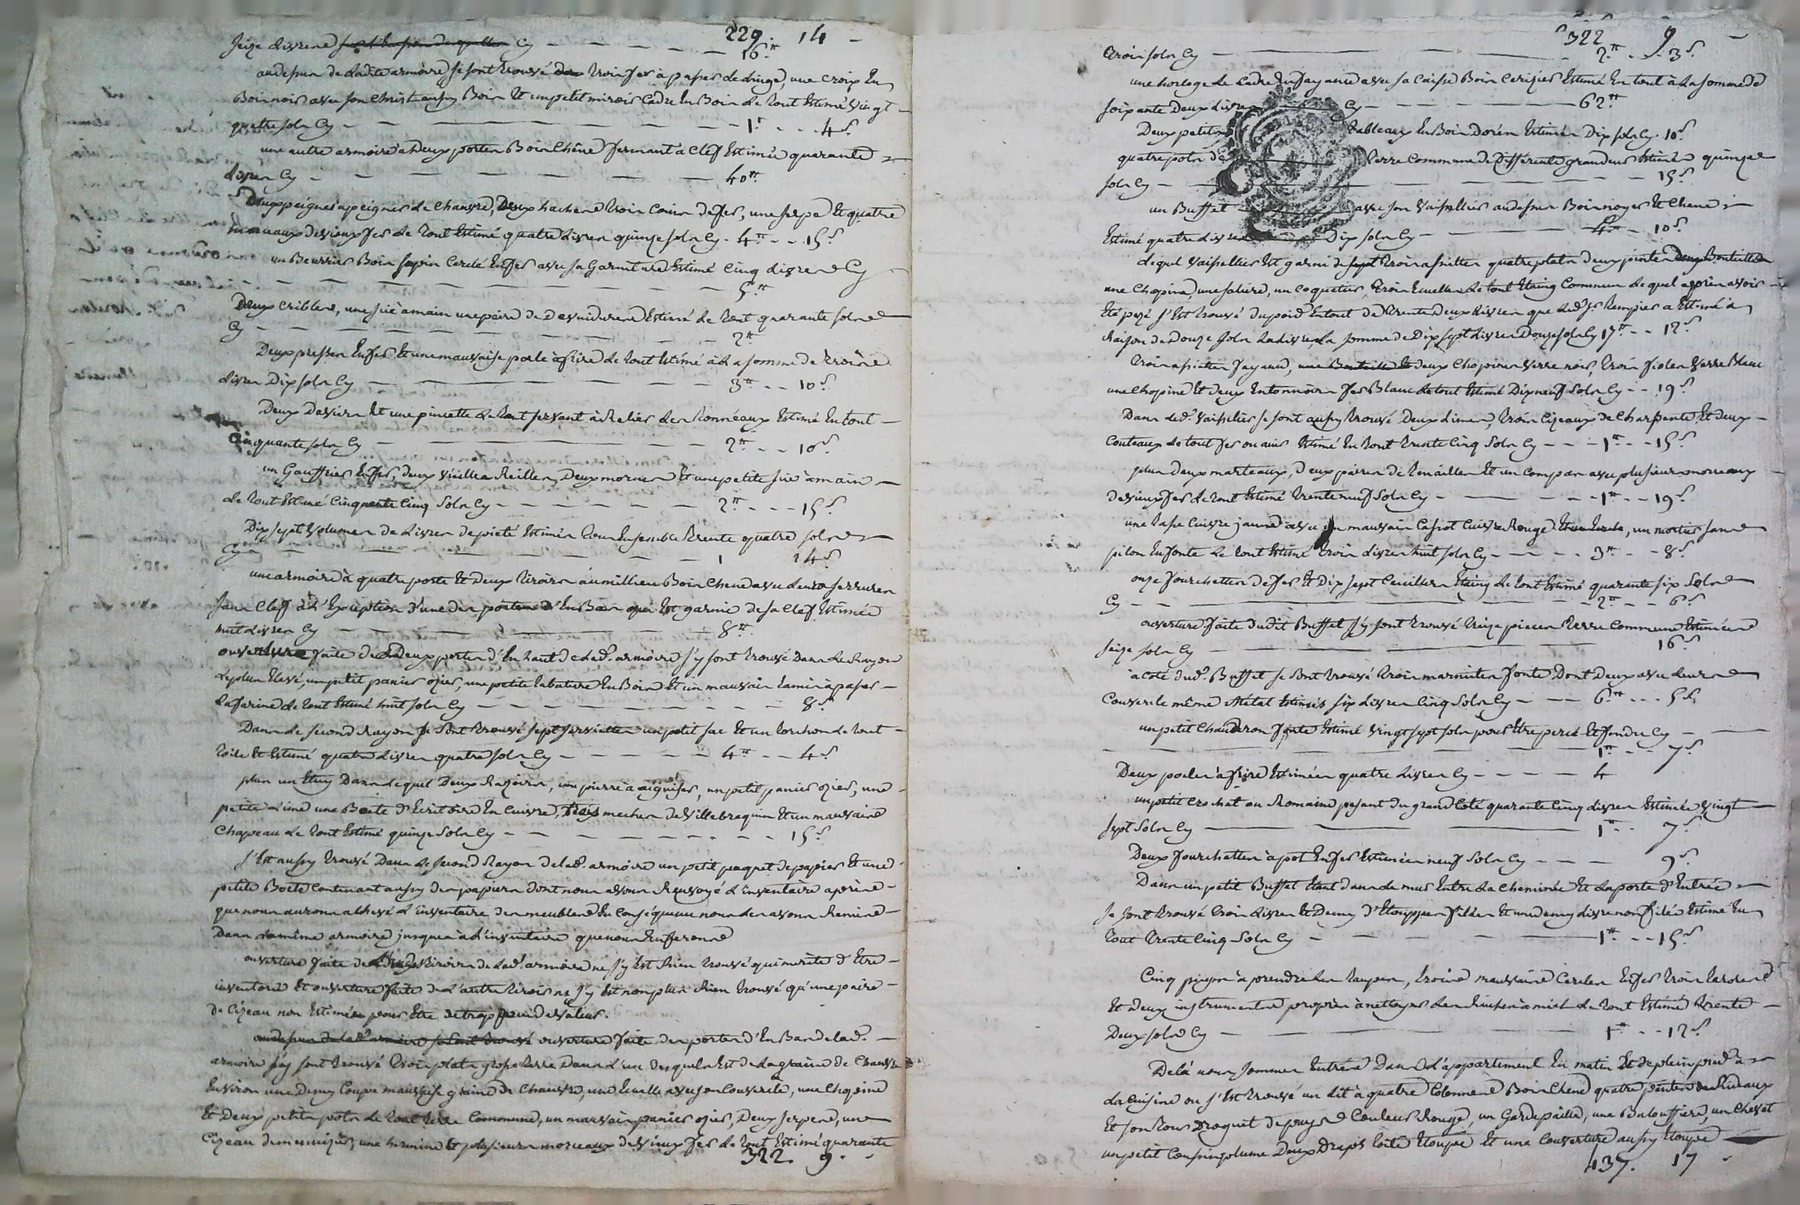 229 14
Seize livres Cy 16#
au dessus de ladite armoire se sont trouvé trois fers à passer le linge, une croix En
Bois noir avec son Christ aussy Bois Et un petit miroir Cadre En Bois le tout Estimé vingt
quatre sols Cy 1# 4s
une autre armoire à Deux portes Bois Chêne fermant à Clef Estimée quarante
livres Cy 40#
Deux peignes à peigner le Chanvre, Deux haches trois Coins de fer, une serpe Et quatre
morceaux de vieux fer le tout Estimé quatre livres quinze sols Cy 4# 15s
un Beurrier Bois sapin Cerclé En fer avec sa Garniture Estimé Cinq livres Cy
5#
Deux Cribles, une sië à main une paire de Devuidures Estimé le tout quarante sols
Cy 2#
Deux presses En fer Et une mauvaise poele à frire le tout Estimé à la somme de trois
livres Dix sols Cy 3# 10s
Deux Daviers Et une pincette le tout servant à Relier les tonneaux Estimé En tout
Cinquante sols Cy 2# 10s
un Gauffrier En fer, deux vieilles Reilles, Deux mornes Et une petite sië à main
le tout Estimé Cinquante Cinq Sols Cy 2# 15s
Dix sept volumes de Livres de pieté Estimés tous Ensemble trente quatre sols
Cy 1 14s
une armoire à quatre porte Et Deux tiroirs au millieu Bois Chene avec leurs serrures
sans Cleff à l'Exception d'une des portes d'En Bas qui Est garnie de sa Clef Estimée
huit livres Cy 8#
ouverture faite des Deux portes d'En haut de lad. armoire s'y sont trouvé Dans le Rayon
le plus Elevé, un petit panier ozier, une petite tabatiere En Bois Et un mauvais tamis à passer
la farine le tout Estimé huit sols Cy 8s
Dans le second Rayon se sont trouvé sept serviettes un petit sac Et un torchon le tout
toile Et Estimé quatre livres quatre sols Cy 4# 4s
plus un Etuy Dans lequel Deux Razoirs, une pierre à aiguiser, un petit panier ozier, une
petite lime une Boete d'Ecritoire En Cuivre, trois meches de villebrequin Et un mauvais
Chapeau le tout Estimé quinze Sols Cy 15s
s'Est aussy trouvé Dans le second Rayon de lad. armoire un petit paquet de papier Et une
petite Boete Contenant aussy des papiers dont nous avons Renvoyé l'inventaire après
que nous aurons achevé l'inventaire des meubles En Conséquence nous les avons Remis
Dans la même armoire jusques à l'inventaire que nous En ferons
ouverture faite de tiroirs de lad. armoire ne s'y Est Rien trouvé qui merite d'Etre
inventorié Et ouverture faite de l'autre tiroir ne s'y Est non plus Rien trouvé qu'une paire
de Cizeau non Estimée pour Etre de trop peu de valeur.
ouverture faite des portes d'En Bas de lad.
armoire s'y sont trouvé trois plats grosse terre Dans l'un desquels Est de la graine de Chanvre
Environ une Demy Coupe mauvaise graine de Chanvre, une Ecuelle avec son Couvercle, une Chopine
Et Deux petits pots le tout terre Commune, un mauvais panier ozier, Deux serpes, une
Cizeau de menuizier, une hermine Et plusieurs morceaux de vieux fer le tout Estimé quarante
322 9
322 9
trois sols Cy 2# 3s
une horloge le Cadre En fayance avec sa Caisse Bois Cerizier Estimé En tout à la somme de
soixante Deux livres Cy 62#
Deux petits tableaux En Bois Dorés Estimés Dix sols Cy 10s
quatre pots de terre Commune de Différentes grandeurs Estimé quinze
sols Cy 15s
un Buffet avec son vaisellier au dessus Bois noyer Et Chene
Estimé quatre livres Dix sols Cy 4# 10s
lequel vaisellier Est garni de trois assiettes quatre plats deux pintes
une Chopine, une saliere, un Coquetier, trois Ecuelles le tout Etaing Commun lequel après avoir
Eté pezé s'Est trouvé du poid En tout de trente Deux livres que led. sr. Rempier a Estimé à
Raison de Douze sols La livre La somme de Dix sept livres Douze sols Cy 17# 12s
trois assiettes fayance, deux Chopines verre noir, trois fioles verre Blanc
une Chopine Et deux Entonnoirs fer Blanc le tout Estimé Dix neuf Sols Cy 19s
Dans led. vaisellier se sont aussy trouvé Deux limes, trois Cizeaux de Charpente Et deux
Couteaux le tout fer ou acier Estimé En tout trente Cinq Sols Cy 1# 15s
plus deux marteaux, deux paires de tenailles Et un Compas avec plusieurs morceaux
de vieux fer le tout Estimé trente neuf Sols Cy 1# 19s
une tasse Cuivre jaune avec un mauvais Cassot Cuivre Rouge, un mortier sans
pilon En fonte le tout Estimé trois livres huit sols Cy 3# 8s
onze fourchettes de fer Et Dix sept Cuilliers Etaing le tout Estimé quarante six Sols
Cy 2# 6s
ouverture faite dudit Buffet s'y sont trouvé treize pieces terre Commune Estimées
seize sols Cy 16s
a coté dud. Buffet se sont trouvé trois marmites fonte Dont Deux avec leurs
Couvercle même métal Estimés six livres Cinq Sols Cy 6# 5s
un petit Chauderon fonte Estimé vingt sept sols pour Etre percé Et fendu Cy
1# 7s
Deux poeles à frire Estimées quatre Livres Cy 4
un petit Crochet ou Romaine pesant du grand Coté quarante Cinq Livres Estimée vingt
sept Sols Cy 1# 7s
Deux fourchettes à pot En fer Estimées neuf Sols Cy 9s
Dans un petit Buffet Etant dans le mur Entre La Cheminée Et La porte d'Entrée
se sont trouvé trois livres Et Demy d'Etouppes filées Et une demy livre non filée Estimé En
tout trente Cinq Sols Cy 1# 15s
Cinq pieges à prendre les taupes, trois mauvais Cercles En fer trois tarots
Et Deux instruments propres à nettoyer les Ruches à miel le tout Estimé trente
Deux sols Cy 1# 12s
De là nous sommes Entrés Dans l'appartement En matin Et de plein pied à
la Cuisine ou s'Est trouvé un Lit à quatre Colonnes Bois Chene quatre Rideaux
Et son tour Droguet de pays Couleur Rouge, un Gardepaille, une Baloufiere, un Chevet
un petit Coussin plume Deux Draps toile Etouppe Et une Couverture aussy Etouppe
437 17